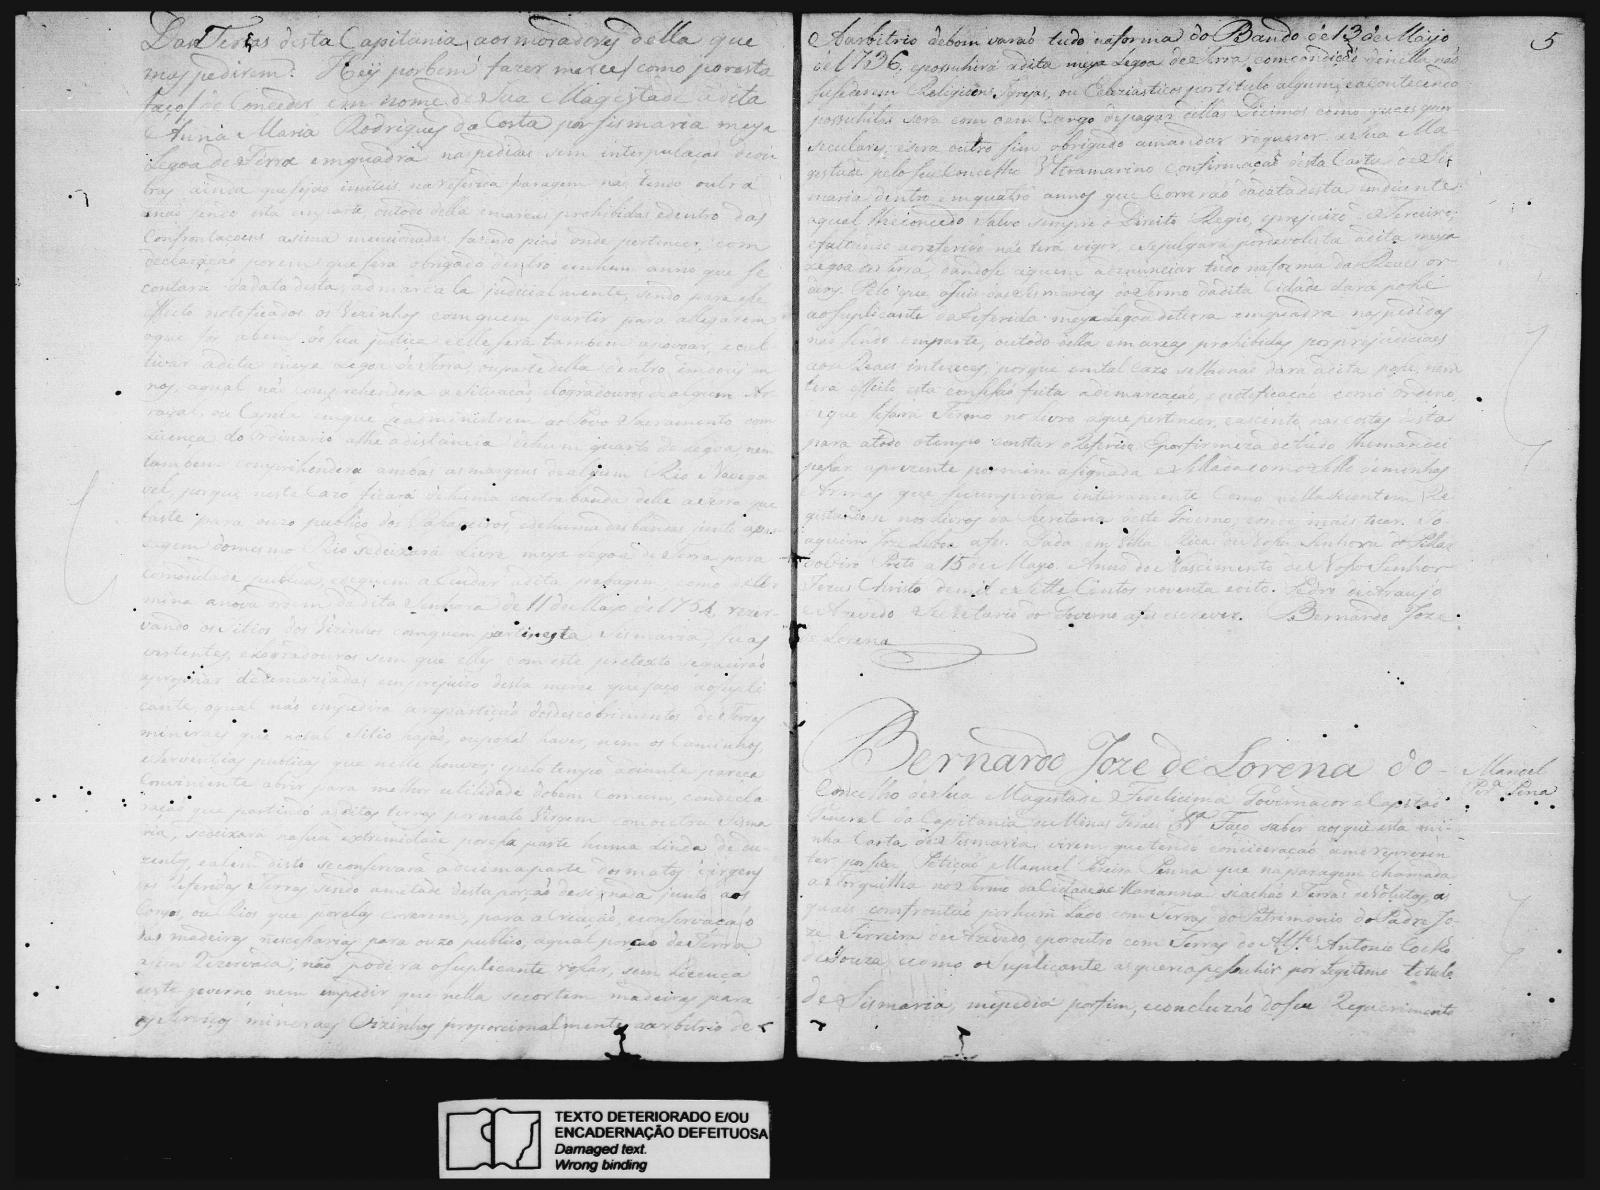 Das Terras desta Capitania, aos moradores della que
mas pedirem: Hey por bem fazer merce (como por esta
faço) de Conceder em nome de Sua Magestade a dita
Anna Maria Rodrigues da Costa por sismaria meya
Legoa de Terra em quadra na pedidas sem interpulaçaõ de ou
tras ainda que sejaõ inuteis na referida paragem naõ tendo outra
e naõ sendo esta em parte ou todo della em areas prohibidas e dentro das
Confrontaçoens asima mencionadas fazendo piaõ onde pertencer; com
declaraçaõ porem que sera obrigada dentro em hum anno que se
contara da data desta, a demarcala judicialmente, sendo para esse
effeito notificados os Vezinhos com quem partir para alegarem
o que for a bem de sua justiça e elle sera tambem a povoar, e cul
tivar a dita meya Legoa de Terra, ou parte della dentro em dous an
nos, a qual naõ comprehendera a situaçaõ e Logradouros de algum Ar
rayal, ou Capela em que se administrem ao Povo Sacramento com
Licença do Ordinario athe a distancia de hum quarto de Legoa; nem
tambem comprehendera ambas as margens de algum Rio Navega
vel, porque neste Cazo ficará de huma e outra banda delle a terra que
baste para o uzo publico dos Pasageiros, e de huma das bandas junto a pas
sagem do mesmo Rio se deixará Livre meya Legoa de Terra para
comodidade publica, e de quem arrendar a dita pasagem, como deter
mina a nova ordem da dita Senhora de 11 de Março de 1754 rezer-
vando os Sitios dos Vizinhos com quem partir esta Sismaria, suas
vertentes, e Logradouros sem que elles com este pretexto se queiraõ
apropriar de demaziadas em prejuizo desta merce que faço ao supli
cante o qual naõ empedira a repartiçaõ dos descobrimentos de Terras
mineraes que no tal Sitio hajaõ, ou possaõ haver, nem os Caminhos,
e Serventias publicas que nelle houver; e pelo tempo adiante pareça
Conveniente abrir para melhor utilidade do bem Comum, com decla
raçaõ que partindo a ditas terras por mato Virgem com outra Sisma
ria, se deixara na sua extremidade por cada parte huma Linea de du
zentos, e alem disto se conservará a decima parte dos matos virgens
das Referidas Terras sendo a metade desta porçaõ designada junto aos
Corgos, ou Rios que por elas correrem, para a Creaçaõ, e conservaçaõ
das madeiras necesarias para o uzo publico, a qual porçaõ de Terra
asim Rezervada; naõ podera o suplicante rosar, sem Licença
deste governo nem empedir que nella se cortem madeiras para
os Serviços mineraes Vizinhos proporcionalmente a arbitrio de
Aarbitrio de bom varaõ tudo na forma do Bando de 13 de Mayo
de 1736, e possuhirá a dita meya Legoa de Terra com condiçaõ de nella naõ
sucederem Religioens, Igrejas, ou Ecleziasticos por titulo algum; e acontecendo
possuhilas será com o em Cargo de pagar dellas Dizimos como quaesquer
seculares; e sera outro sim obrigado a mandar requerer a Sua Ma-
gestade pelo seu Concelho Ultramarino confirmaçaõ desta Carta de Sis
maria dentro em quatro annos que Correraõ da data desta em diante:
a qual lhe concedo salvo sempre o Direito Regio, e prejuizo de Terceiro;
e faltando ao referido naõ terá vigor, e se julgará por devoluta a dita meya
Legoa de Terra, dando se a quem a denunciar tudo na forma das Reaes or
dens. Pelo que o Juis das Sismarias do Termo da dita Cidade dará posse
ao Suplicante da Referida meya Legoa de terra em quadra nas pedidas
naõ sendo em parte, ou todo della em areas prohibidas por prejudiciaes
aos Reaes intereces, porque em tal Cazo se lhe naõ dará a dita posse, nem
terá effeito esta concessaõ feita a demarcaçaõ, e notificaçaõ como ordeno
de que se fará Termo no Livro a que pertencer, e asento nas costas desta
para a todo o tempo constar o Referido. E por firmeza de tudo lhe mandei
pasar a prezente por mim asignada e Sellada com o Sello de minhas
Armas que se cumprirá inteiramente Como nella se contem Re
gistandose nos Livros da Secretaria deste Governo, e onde mais tocar. Jo-
aquim Joze Lisboa a fes. Dada em Villa Rica de Nossa Senhora do Pilar
do Ouro Preto a 15 de Mayo. Anno do Nascimento de Nosso Senhor
Jezus Christo de mil e Sette Centos noventa e oito. Pedro de Araujo
e Azevedo Secretario do Governo a fes escrever. Bernardo Joze
de Lorena
5
Bernardo Joze de Lorena do
Manoel
Per.ª Pena
Concelho de Sua Magestade Fidelicima Governador e Capitaõ
General da Capitania de Minas Geraes &ª Faço saber aos que esta mi-
nha Carta de Sismaria virem que tendo concideraçaõ a me reprezen
tar por sua Petiçaõ Manuel Pereira Penna que na paragem chamada
a Forquilha no Termo da Cidade de Marianna se achaõ Terras devolutas, as
quais comfrontaõ por hum Lado com Terras do Patrimonio do Padre Jo-
ze Ferreira de Azevedo, e por outro com Terras do Alfes Antonio Coelho
de Souza, e como o Suplicante as queria possuhir por Legitimo titulo
de Sismaria, me pedia por fim, e concluzaõ do seu Requerimento
TEXTO DETERIORADO E/OU
ENCADERNAÇÃO DEFEITUOSA
Damaged text.
Wrong binding